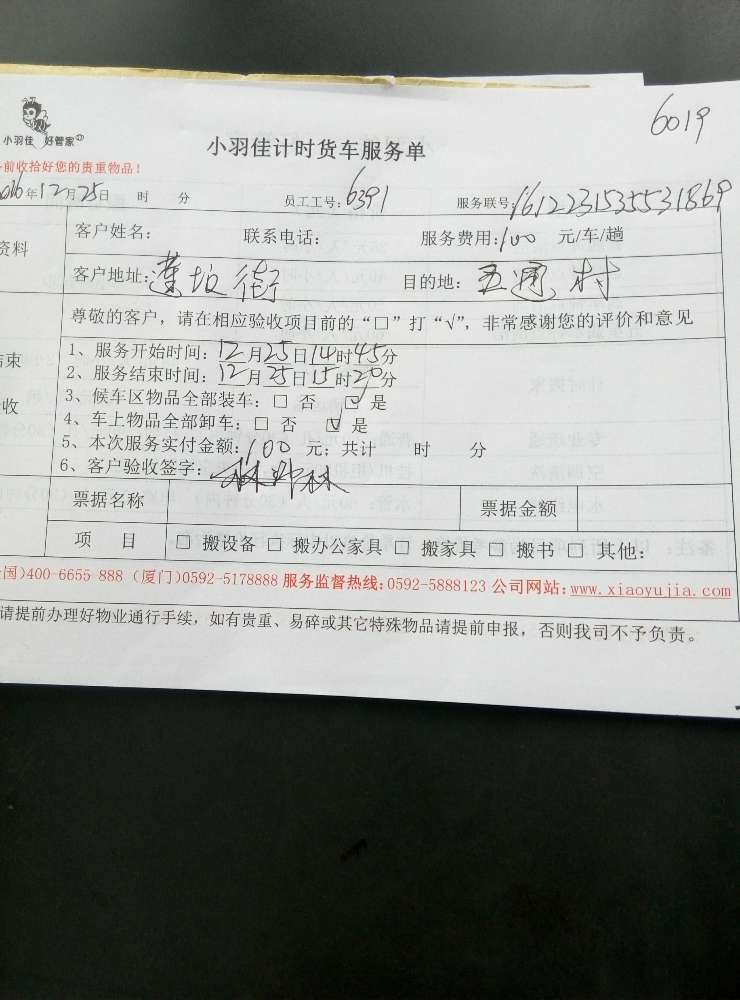 6019
小羽佳 好管家
小羽佳计时货车服务单
前收拾好您的贵重物品！
2016年12月25日 时 分 员工工号：6391 服务联号：161223153553 1869
资料 客户姓名： 联系电话： 服务费用：100 元/车/趟
客户地址：莲坂街 目的地：五通村
尊敬的客户，请在相应验收项目前的“□”打“√”，非常感谢您的评价和意见
结束 1、服务开始时间：12月25日14时45分
2、服务结束时间：12月25日15时20分
收 3、候车区物品全部装车：□ 否 ☑ 是
4、车上物品全部卸车：□ 否 ☑ 是
5、本次服务实付金额：100 元；共计 时 分
6、客户验收签字：
票据名称 票据金额
项 目 □ 搬设备 □ 搬办公家具 □ 搬家具 □ 搬书 □ 其他：
国)400-6655 888 (厦门)0592-5178888 服务监督热线：0592-5888123 公司网站：www.xiaoyujia.com
请提前办理好物业通行手续，如有贵重、易碎或其它特殊物品请提前申报，否则我司不予负责。